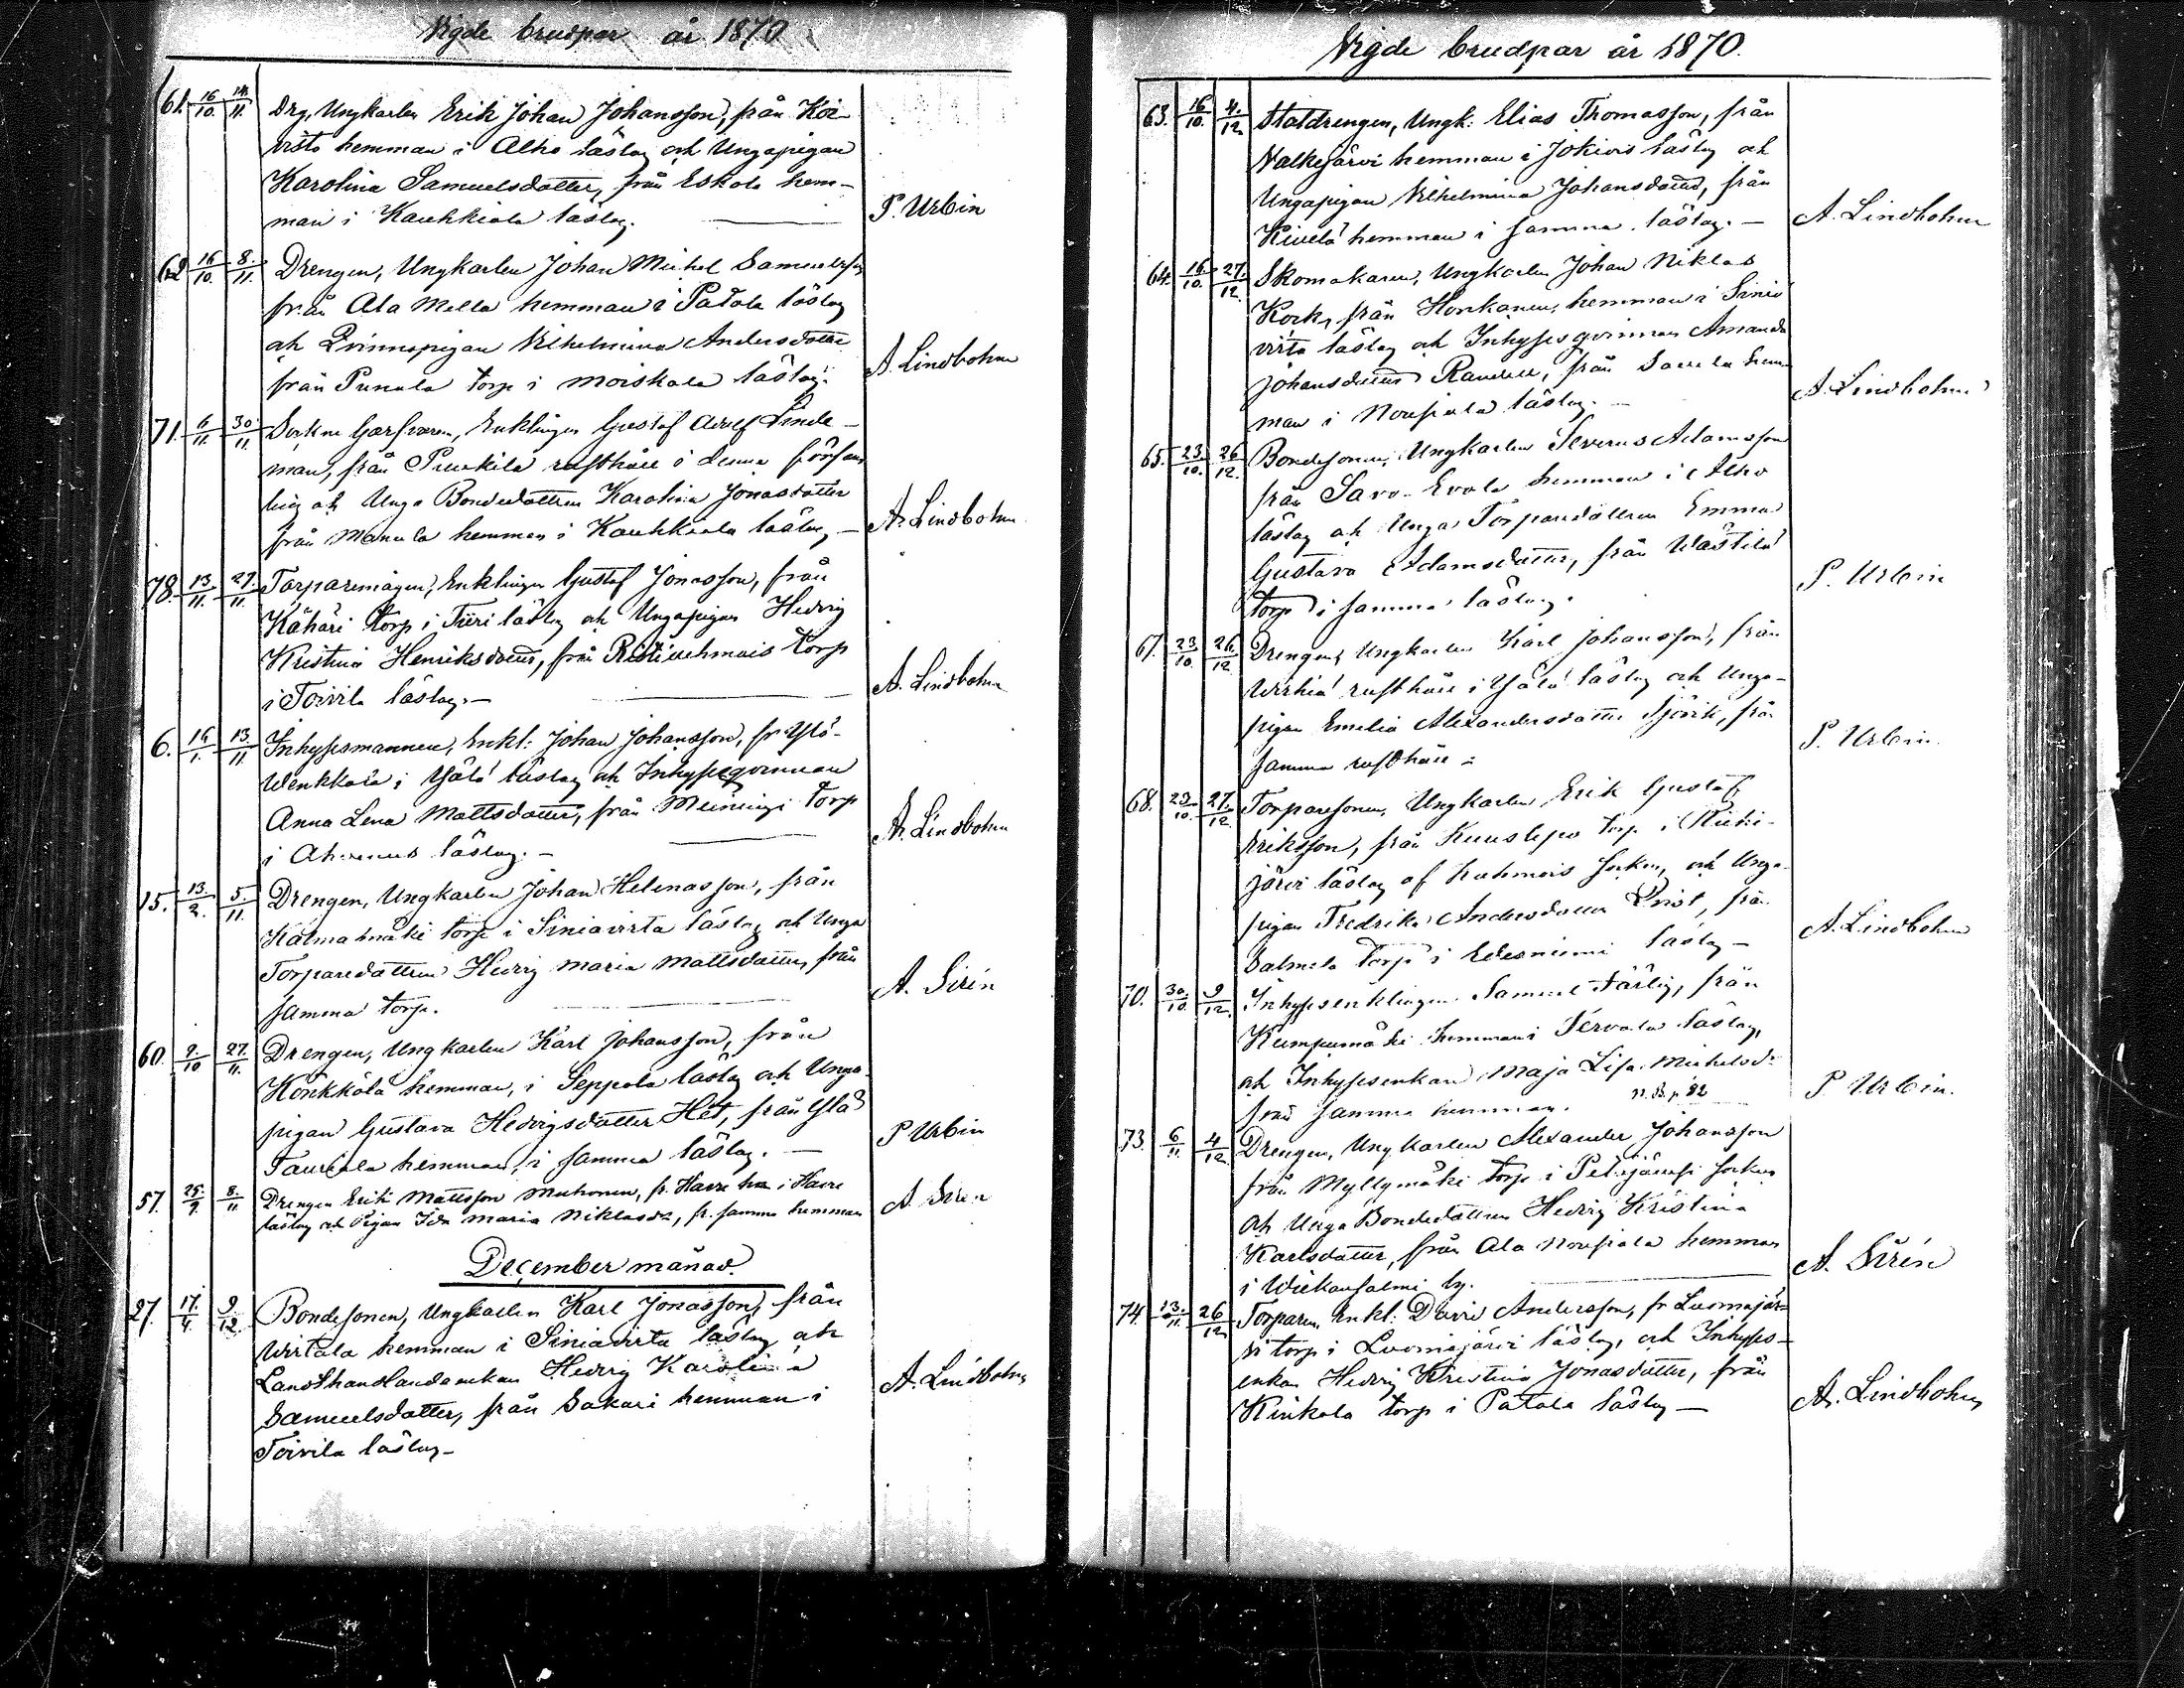 Vigde brudpar år 1870
61. 16/10. 14/11. Drg, Ungkarlen Erik Johan Johansson, från Koi-
visto hemman i Alho läslag och Ungapigan
Karolina Samuelsdotter, från Eskola hem-
man i Kaukkiala läslag. P. Urbin
62 16/10. 8./11. Drengen, Ungkarlen Johan Michel Samuelsson
från Ala Mella hemman i Patala läslag
och Qvinnspigan Vilhelmina Andersdotter
från Punala torp i Moiskala läslag. A. Lindbohm
71. 6/11. 30/11. Sockne Garfvaren, Enklingen Gustaf Adolf Linde-
man, från Puukila rusthåll i denna försam
ling och Unga Bondedottren Karolina Jonasdotter
från Manula hemman i Kaukkiala läslag – A. Lindbohm
78. 13./11. 27./11. Torparemågen, Enklingen Gustaf Jonasson, från
Kähäri torp i Tiiri läslag och Ungapigan Hedvig
Kristina Henriksdotter, från Ristiauhmais torp
i Toivila läslag. – A. Lindbohm
6. 16/1. 13./11 Inhysesmannen, Enkl: Johan Johansson, fr. Ylö-
Wenkkala i Yölö läslag och Inhysesqvinnan
Anna Lena Mattsdotter, från Meininge torp
i läslag. – A. Lindbohm
15. 13./2. 5./11. Drengen, Ungkarlen Johan Helenasson, från
Kalmamäki torp i Siniavirta läslag och Unga
Torparedottren Hedvig Maria Mattsdotter, från
samma torp. A. Sirén
60. 9./10 27./11. Drengen, Ungkarlen Karl Johansson, från
Könkkölä hemman, i Seppola läslag och Unga-
pigan Gustava Hedvigsdotter Het, från Ylä
Tauriala hemman, i samma läslag. – P Urbin
57. 25./9. 8./11 Drengen Erik Mattsson Muhonen, fr. Harre hn i Harre
läslag och Pigan Ida Maria Niklasdr, fr. samma hemman A Siren
December månad.
27. 17./4. 9/12. Bondesonen, Ungkarlen Karl Jonasson, från
Wirtala hemman i Siniavirta läslag och
Landthandlandeenkan Hedvig Karolina
Samuelsdotter, från Sakari hemman i A. Lindbohm
Toivila läslag –
Vigde brudpar år 1870.
63. 16/10. 4./12 Statdrengen, Ungk: Elias Thomasson, från
Valkejärvi hemman i Jokivis läslag och
Ungapigan Vilhelmina Johansdotter, från
Kivelä hemman i samma läslag. – A. Lindbohm
64. 16./10. 27./12. Skomakaren, Ungkarlen Johan Niklas
Kock, från Honkanen hemman i Sinia
virta läslag och Inhysesqvinnan Amanda
Johansdotter Randell, från Savela hem
man i Noupiala läslag. – A. Lindbohm
65. 23./10. 26/12. Bondesonen, Ungkarlen Severus Adamsson
från Savo-Evola hemman i Alho
läslag och Unga Torparedottren Emma
Gustava Adamsdotter, från Wästilä
torp i samma läslag. P. Urbin
67. 23/10. 26./12 Drengen, Ungkarlen Karl Johansson, från
Wirkiä rusthåll i Yölö läslag och Unga-
pigan Emelia Alexandersdotter Sjövik, från
samma rusthåll – P. Urbin.
68. 23./10. 27./12. Torparesonen, Ungkarlen Erik Gustaf
Eriksson, från Kuuslepo torp i Ruki-
järvi läslag af Kuhmois socken, och Unga
pigan Fredrika Andersdotter Qvist, från
Salmela torp i Edesniemi läslag – A. Lindbohm
70. 30./10. 9/12. Inhysesenklingen Samuel Färlig, från
Kumpumäki hemman i Tervala läslag,
och Inhysesenkan Maja Lisa Michelsdr
från samma hemman. n.b. p. 82 P Urbin.
73. 6/11. 4/12. Drengen, Ungkarlen Alexander Johansson
från Myllymäki torp i Petäjävesi socken
och Unga Bondedottren Hedvig Kristina
Karlsdotter, från Ala Noupiala hemman
i by. A. Sirén
74. 13./11. 26/12 Torparen Enkl: David Andersson, fr Luomajär-
vi torp i Luomajärvi läslag, och Inhyses-
enkan Hedvig Kristina Jonasdotter, från
Kinkala torp i Patala läslag – A. Lindbohm